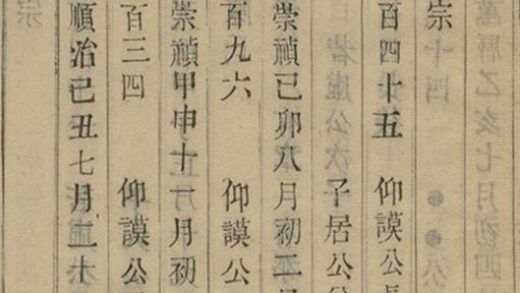 宗
百四十五 仰謨公長
子居公
崇禎已卯八月初二
百九六 仰謨公
崇禎甲申十一月初
百三四 仰謨公
順治己丑七月二十